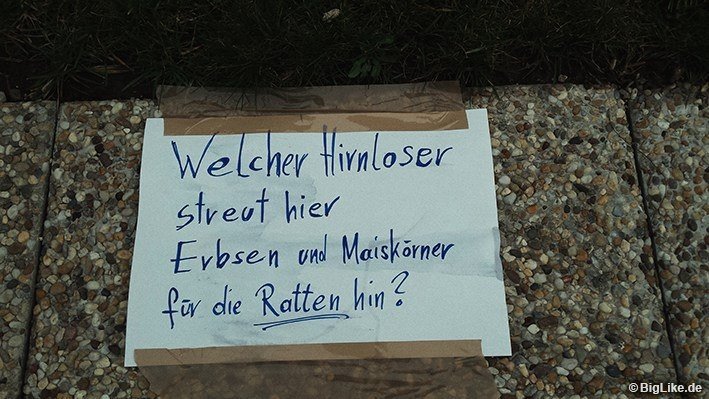 Welcher Hirnloser
streut hier
Erbsen und Maiskörner
für die Ratten hin?
©BigLike.de